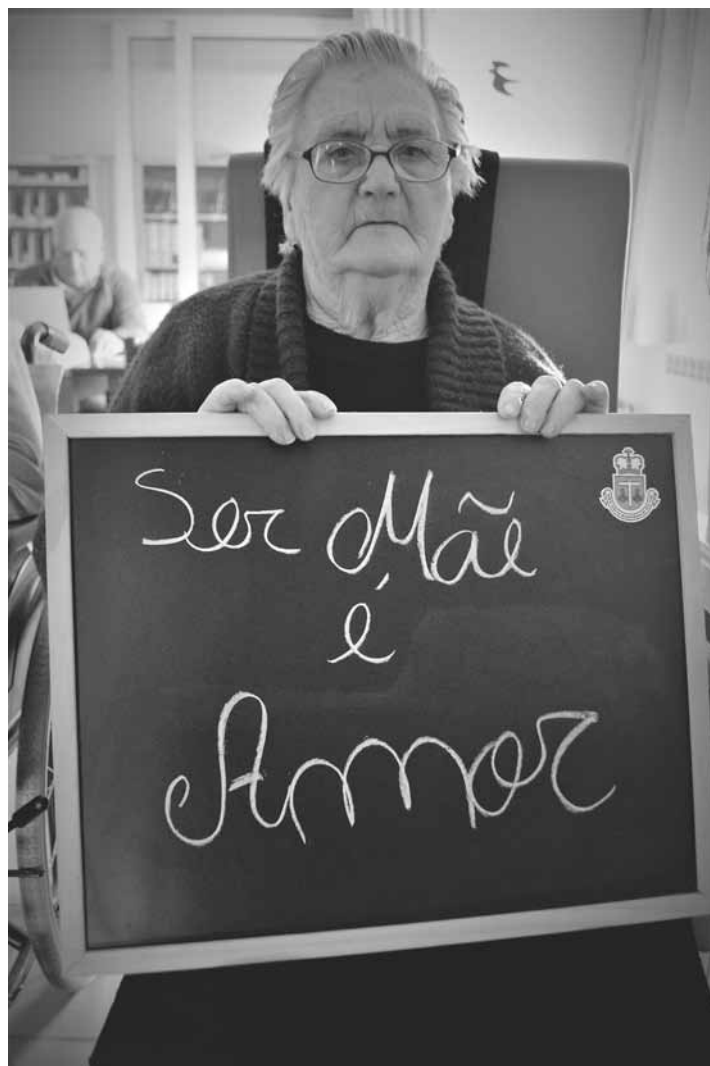 Ser Mãe
é
Amor